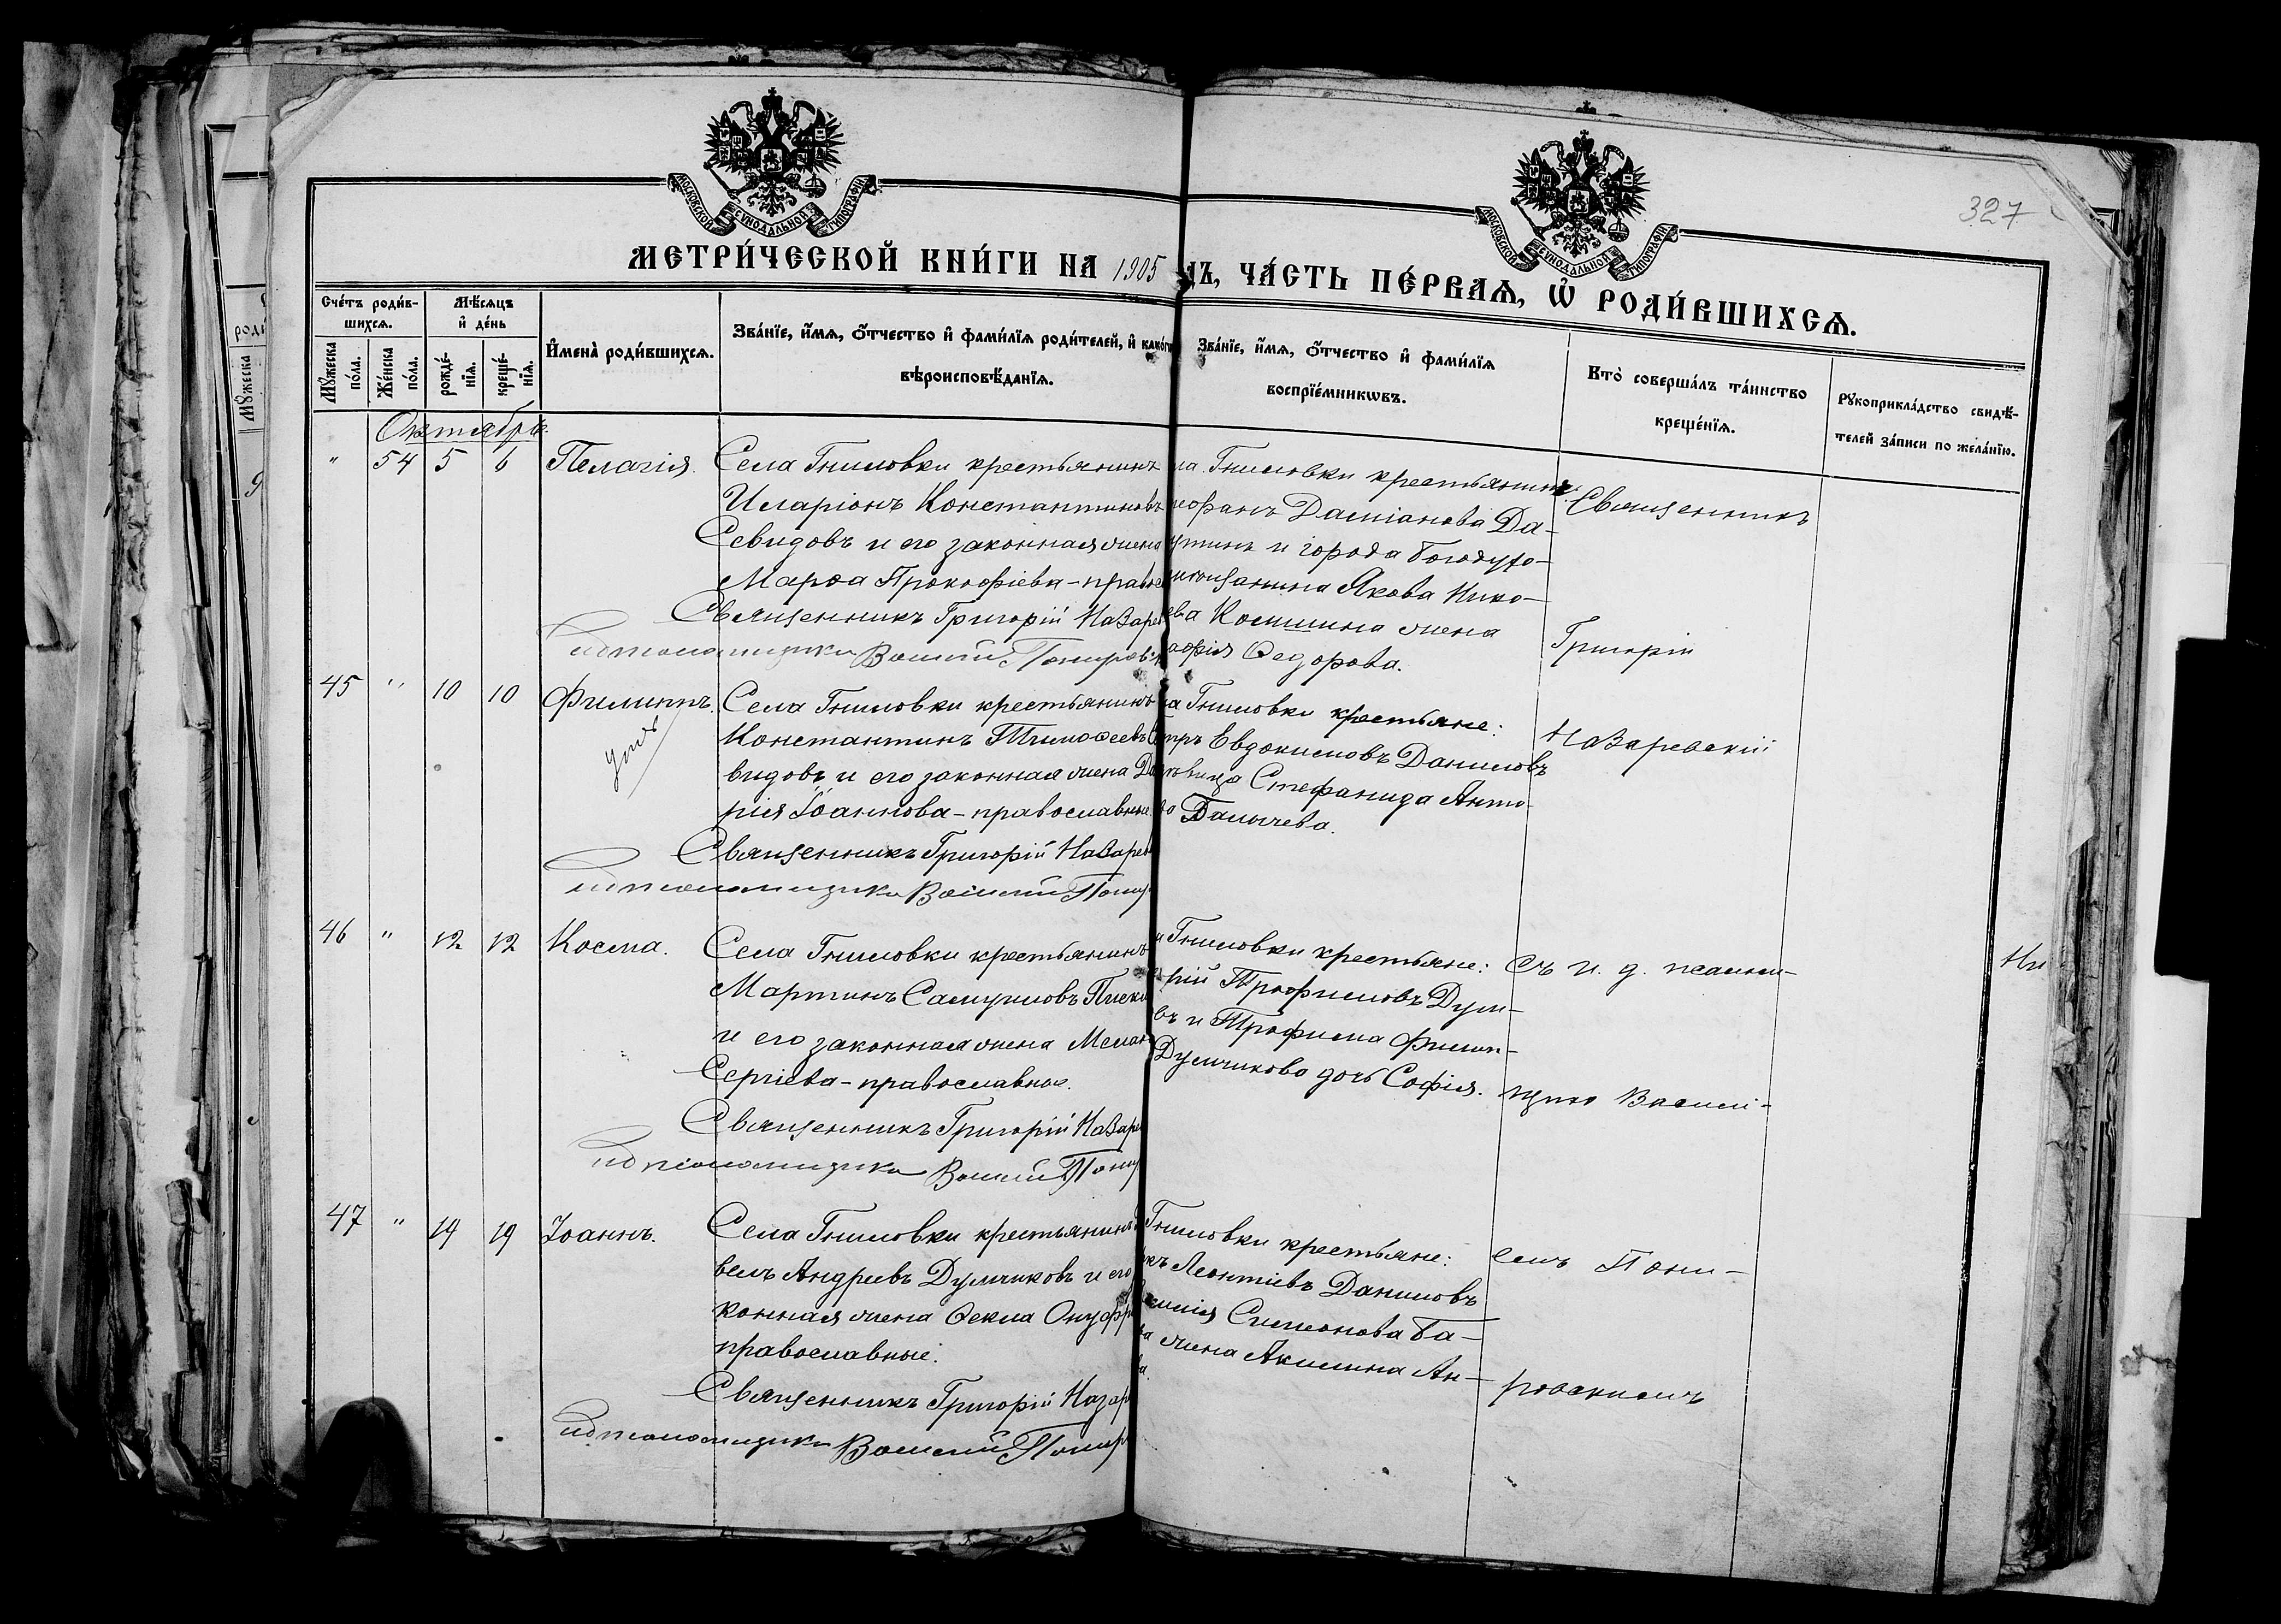 327
МОСКОВСКОЙ СѴНОДАЛЬНОЙ ТИПОГРАФІИ
МОСКОВСКОЙ СѴНОДАЛЬНОЙ ТИПОГРАФІИ
МЕТРИ́ЧЕСКОЙ КНИ́ГИ НА 1905
ДЪ, ЧА́СТЬ ПЕ́РВАѦ, Ѡ҆ РОДИ́ВШИХСѦ.
Сче́тъ роди́в-
шихсѧ.
Мѣ́сѧцъ
и҆ де́нь
Мꙋ́жеска по́ла.
Же́нска по́ла.
рожде́-
нїѧ.
креще́-
нїѧ.
И҆мена̀ роди́вшихсѧ.
Зва́нїе, и҆́мѧ, ѻ҆́тчество и҆ фами́лїѧ роди́телей, и҆ како́гѡ
вѣроисповѣ́данїѧ.
Зва́нїе, и҆́мѧ, ѻ҆́тчество и҆ фами́лїѧ
воспрїе́мникѡвъ.
Кто̀ соверша́лъ та́инство
креще́нїѧ.
Рꙋкоприкла́дство свидѣ́-
телей за́писи по жела́нїю.
Октябрь.
" 54 5 6 Пелагія.
Села Гниловки крестьянинъ
Иларіонъ Константиновъ
Севидовъ и его законная жена
Марѳа Прокофіева - право
Священникъ Григорій Назарев
псаломщика Василій Понир
ла Гниловки крестьянинъ
Даміанова Да-
и города Богодухо-
Якова Нико-
ева Кошина жена
Ѳедорова.
Священникъ
Григорій
Назаревскій
45 " 10 10 Филиппъ.
умъ
Села Гниловки крестьянинъ
Константинъ Тимоѳеевъ Се
видовъ и его законная жена Да
рія Іоаннова - православные.
Священникъ Григорій Назарев
псаломщика Василій Пони
ла Гниловки крестьяне:
тръ Евдокимовъ Даниловъ
Стефанида Анто-
ва
46 " 12 12 Косма.
Села Гниловки крестьянинъ
Мартинъ Самуиловъ
и его законная жена Мелан
Сергіева - православные.
Священникъ Григорій Назаре
псаломщика Василій Пони
Гниловки крестьяне:
рій Трофимовъ Дум-
въ и Трофима Филип-
Думчикова дочь Софія.
съ и. д. псалом-
щика Васили-
емъ Пони-
ровскимъ
Ни
47 " 19 19 Іоаннъ.
Села Гниловки крестьянинъ
велъ Андреевъ Думчиковъ и его
конная жена Ѳекла Онуфр
православные.
Священникъ Григорій Назар
псаломщика Василій Понир
Гниловки крестьяне:
Леонтіевъ Даниловъ
Симонова Ба-
ва жена Акилина Ан-
ва.